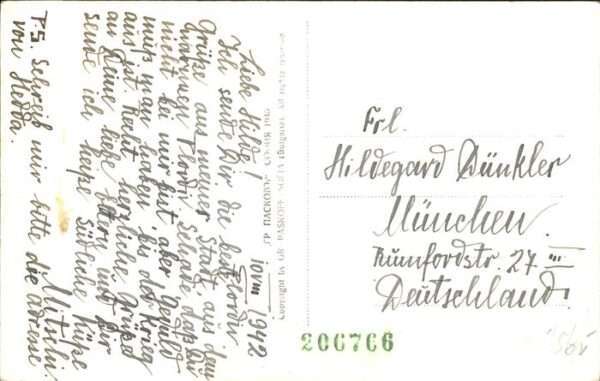 10 VIII 1942
Liebe Hilde!
Ich sende Dir die besten
Grüße aus meiner Stadt, aus dem
warmen Plovdiv. Schade, daß Du
nicht bei mir bist, aber Geduld
muß man haben, bis der Krieg
aus ist. Recht herzliche Grüße
an Deine liebe Eltern und Dir
sende ich heiße südliche Küße
P.S. Schreib mir bitte die Adresse
von Hedda.
ГР. ПАСКОВЪ СОФИЯ
Copyright by GR. PASKOFF SOFIA
Frl.
Hildegard Dünkler
München.
Rumfordstr. 27 III
Deutschland
206766